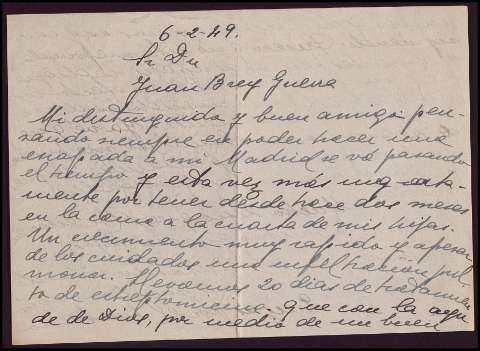 6-2-49.
Sr Dn
Juan Brey Guerra
Mi distinguido y buen amigo: pen-
sando siempre en poder hacer una
escapada a mi Madrid se va pasando
el tiempo y esta vez más ingrata-
mente por tener desde hace dos meses
en la cama a la cuarta de mis hijas.
Un crecimiento muy rapido y apesar
de los cuidados una infiltración pul-
monar. Llevamos 20 dias de tratamien-
to de estreptomicina. que con la ayu
da de Dios, por medio de un buen